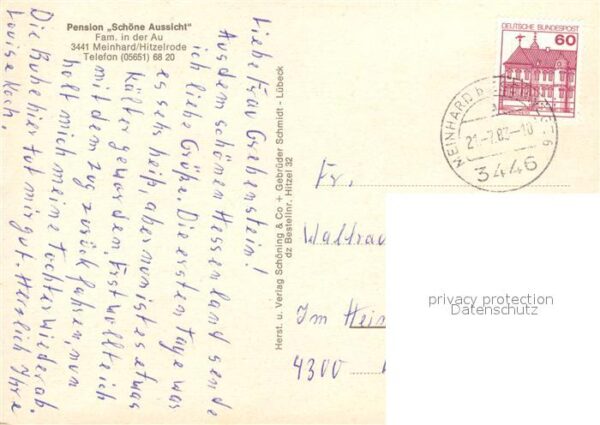 Pension „Schöne Aussicht"
Fam. in der Au
3441 Meinhard/Hitzelrode
Telefon (05651) 68 20
Liebe Frau Grebenstein!
Aus dem schönen Hessenland sende
ich liebe Grüße. Die ersten Tage war
es sehr heiß, aber nun ist es etwas
kälter geworden. Erst wollte ich
mit dem Zug zurück fahren, nun
holt mich meine Tochter wieder ab.
Die Ruhe hier tut mir gut. Herzlich Ihre
Louise Koch.
Herst. u. Verlag Schöning & Co + Gebrüder Schmidt - Lübeck
dz Bestellnr. Hitzel 32
DEUTSCHE BUNDESPOST
60
MEINHARD
21.-7.82-10
3446
Fr.
Waltrau
Im Hein
4300
privacy protection
Datenschutz